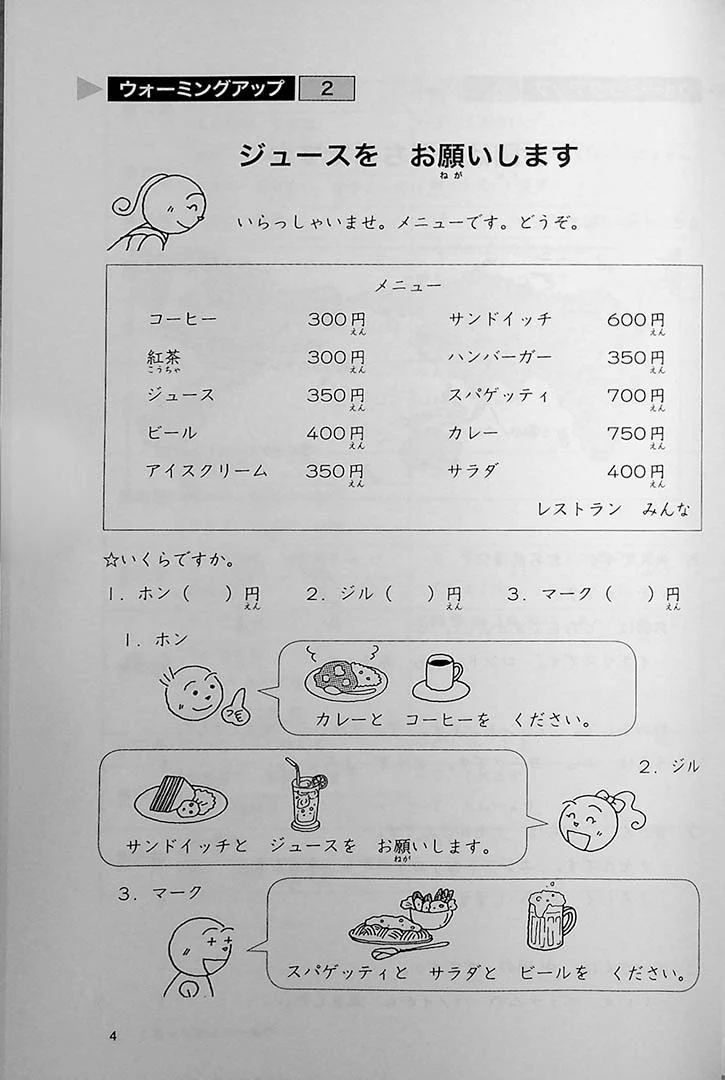 ウォーミングアップ 2
ジュースを お願いします
ねが
いらっしゃいませ。メニューです。どうぞ。
メニュー
コーヒー 300円 サンドイッチ 600円
えん えん
紅茶 300円 ハンバーガー 350円
こうちゃ えん えん
ジュース 350円 スパゲッティ 700円
えん えん
ビール 400円 カレー 750円
えん えん
アイスクリーム 350円 サラダ 400円
えん えん
レストラン みんな
☆いくらですか。
1. ホン( )円 2. ジル( )円 3. マーク( )円
えん えん えん
1. ホン
カレーと コーヒーを ください。
2. ジル
サンドイッチと ジュースを お願いします。
ねが
3. マーク
スパゲッティと サラダと ビールを ください。
4